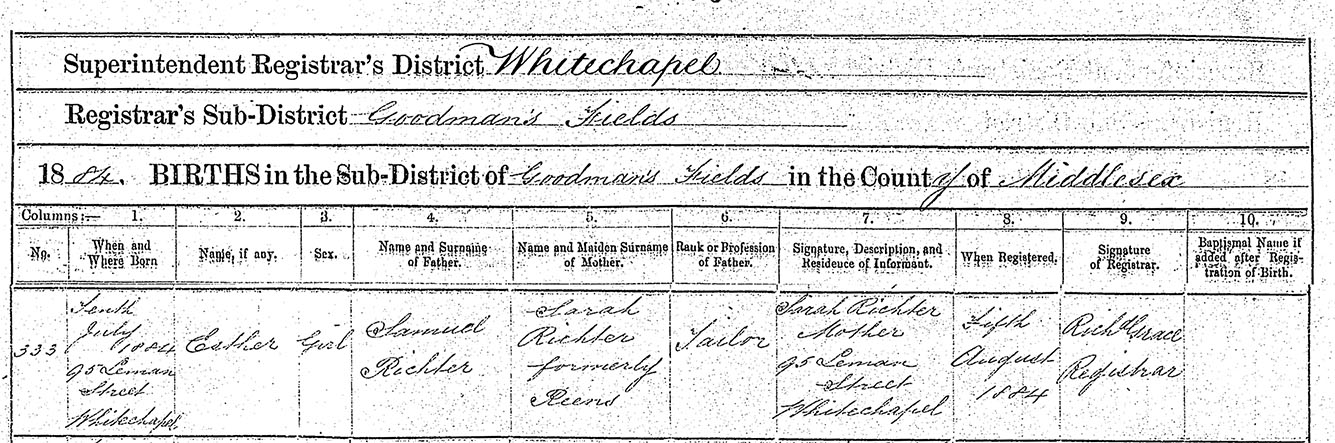 Superintendent Registrar's District Whitechapel
Registrar's Sub-District Goodman's Fields
1884. BIRTHS in the Sub-District of Goodman's Fields in the County of Middlesex
Columns:— 1. 2. 3. 4. 5. 6. 7. 8. 9. 10.
No. When and Where Born Name, if any. Sex. Name and Surname of Father. Name and Maiden Surname of Mother. Rank or Profession of Father. Signature, Description, and Residence of Informant. When Registered. Signature of Registrar. Baptismal Name if added after Registration of Birth.
333
Tenth
July
1884
95 Leman
Street
Whitechapel
Esther
Girl
Samuel
Richter
Sarah
Richter
formerly
Reens
Tailor
Sarah Richter
Mother
95 Leman
Street
Whitechapel
Fifth
August
1884
Richd Grace
Registrar